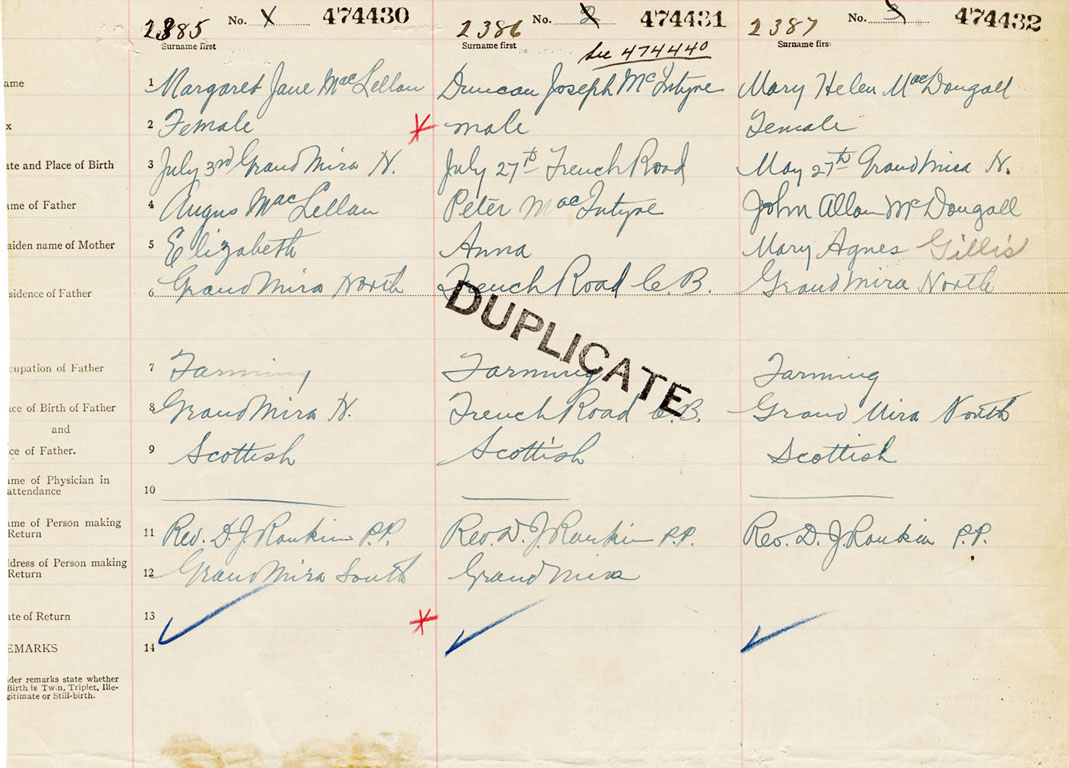 2385 No. 1 474430 2386 No. 2 474431 2387 No. 3 474432
Surname first Surname first See 474440 Surname firs
ame 1 Margaret Jane MacLellan Duncan Joseph McIntyre Mary Helen MacDougall
x 2 Female male Female
ate and Place of Birth 3 July 3rd Grand Mira N. July 27th French Road May 27th Grand Mira N.
ame of Father 4 Angus MacLellan Peter MacIntyre John Allan McDougall
aiden name of Mother 5 Elizabeth Anna Mary Agnes Gillis
sidence of Father 6 Grand Mira North French Road C.B. Grand Mira North
DUPLICATE
cupation of Father 7 Farming Farming Farming
ace of Birth of Father 8 Grand Mira N. French Road C.B. Grand Mira North
and
ce of Father. 9 Scottish Scottish Scottish
ame of Physician in
attendance 10
ame of Person making
Return 11 Rev. D J Rankin P.P. Rev. D. J. Rankin P.P. Rev. D. J. Rankin P.P.
ddress of Person making
Return 12 Grand Mira South Grand Mira
ate of Return 13
EMARKS 14
der remarks state whether
Birth is Twin, Triplet, Ille-
gitimate or Still-birth.